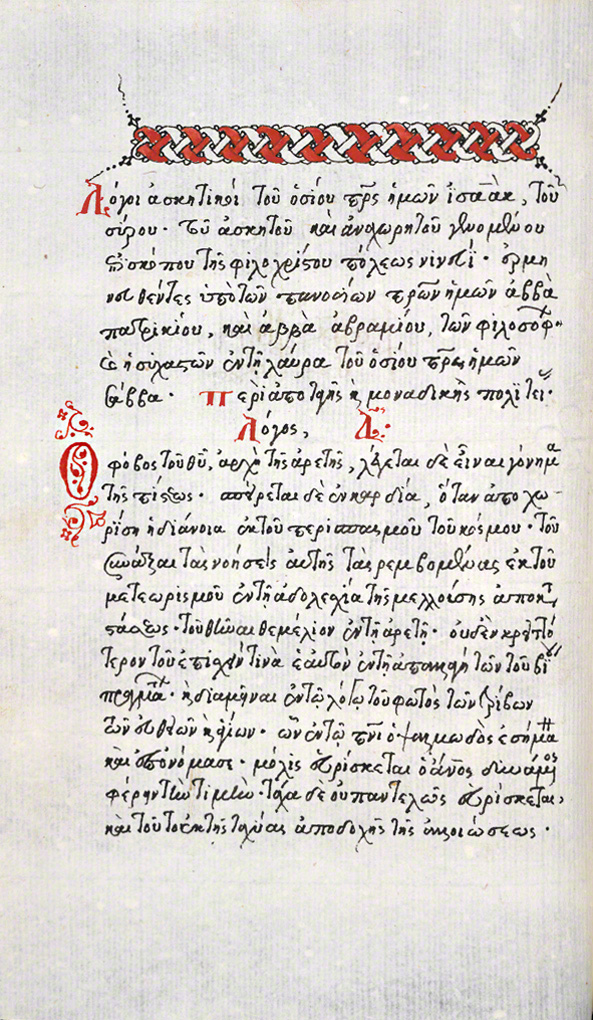 Λόγοι ἀσκητικοὶ τοῦ ὁσίου πρς ἡμῶν ἰσαὰκ, τοῦ
σύρου· τοῦ ἀσκητοῦ καὶ ἀναχωρητοῦ γενομένου
ἐπισκόπου τῆς φιλοχρίστου πόλεως νινευῒ· ἑρμη
νευθέντες ὑπὸ τῶν πανοσίων πρων ἡμῶν ἀββᾶ
πατρικίου, καὶ ἀββᾶ ἀβραμίου, τῶν φιλοσόφ
ἡσυχαστῶν ἐν τῇ λαύρα τοῦ ὁσίου πρς ἡμῶν
σάββα· Περὶ ἀποταγῆς κ μοναδικῆς πολιτεί
Λόγος, Α:
Ὁ φόβος τοῦ θυ, ἀρχὴ τῆς ἀρετῆς, λέγεται δὲ εἶναι γόνημα
τῆς πίστεως· σπείρεται δὲ ἐν καρδία, ὅταν ἀποχω-
ρίση ἡ διάνοια ἐκ τοῦ περισπασμοῦ τοῦ κόσμου· τοῦ
συνάξαι τὰς νοήσεις αὐτῆς τὰς ρεμβομένας ἐκ τοῦ
μετεωρισμοῦ ἐν τῇ ἀδολεσχία τῆς μελλούσης ἀποκτ
στάσεως· τοῦ θεῖναι θεμέλιον ἐν τῇ ἀρετῇ· οὐδὲν κρεῖττό
τερον τοῦ ἐπέχειν τινὰ ἑαυτὸν ἐν τῇ ἀπαλλαγῇ τῶν τοῦ βί
πραγμάτ· κ διαμεῖναι ἐν τῷ λόγῳ τοῦ φωτὸς τῶν τρίβων
τῶν εὐθειῶν κ ἁγίων· ὧν ἐν τῷ πνι ὁ ψαλμωδὸς ἐσήμανε
καὶ ἐπονόμασε· μόλις εὑρίσκεται ὁ ἄνος δυνάμενος
φέρειν τὴν τιμὴν· τάχα δὲ οὐ παντελῶς εὑρίσκεται,
καὶ τοῦτο ἐκ τῆς ταχείας ἀποδοχῆς τῆς ἀλλοιώσεως·